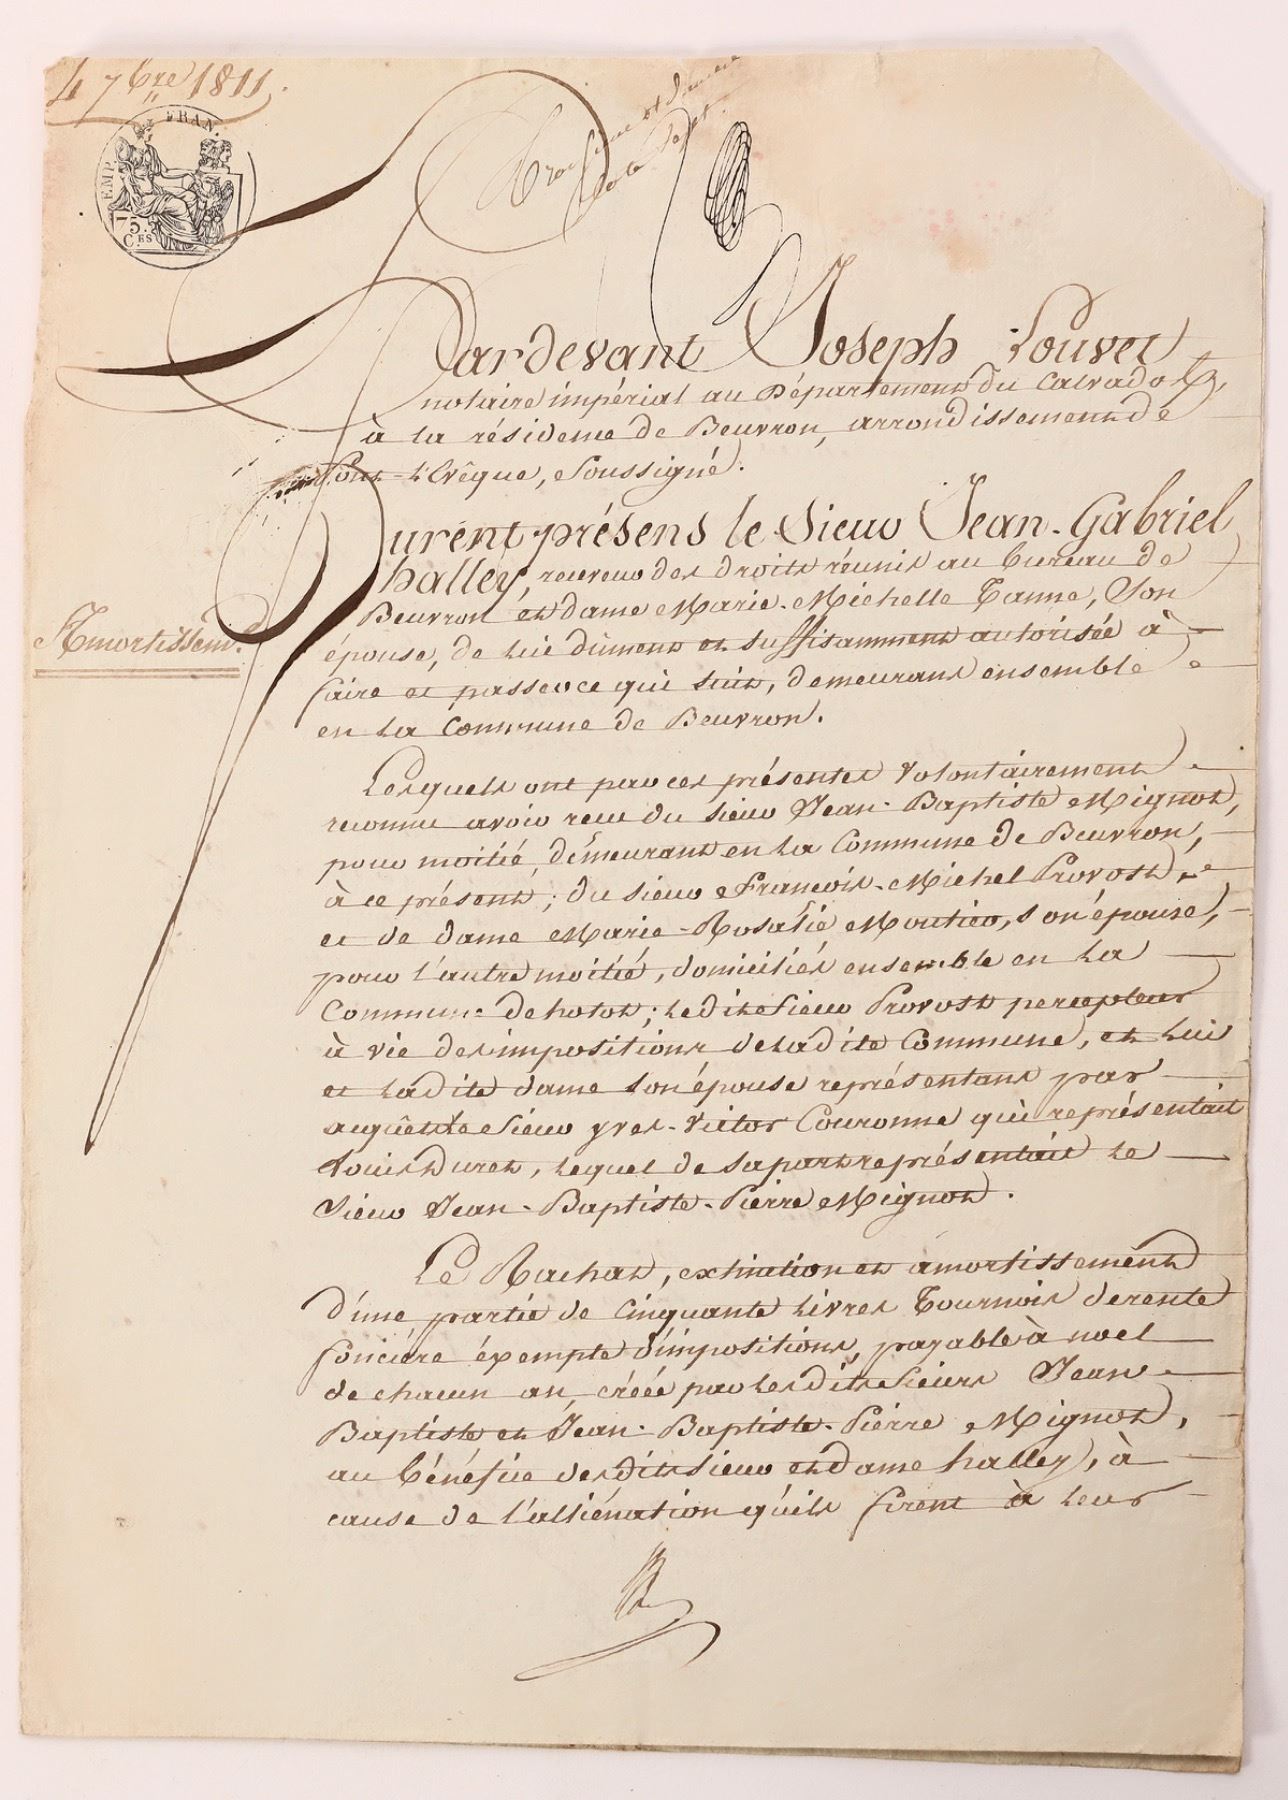 4 7bre 1811.
EMP. FRAN.
75.
CES
Pardevant Joseph Louvet
notaire impérial au Département du Calvados,
à la résidence de Beuvron, arrondissement de
Pont-l'Evêque, Soussigné.
Furent présens le Sieur Jean-Gabriel
halley, receveur des droits réunis au bureau de
Beuvron et dame Marie-Michelle Tanne, Son
Amortissemt.
épouse, de lui dûment et suffisamment autorisée à
faire et passer ce qui suit, demeurans ensemble
en la Commune de Beuvron.
Lesquels ont par ces présentes volontairement
reconnu avoir reçu du sieur Jean-Baptiste Mignot,
pour moitié, demeurant en la Commune de Beuvron,
à ce présent; du sieur François-Michel Provost
et de dame Marie-Rosalie Moutier, son épouse,
pour l'autre moitié, domiciliés ensemble en la
Commune de hotot; ledit Sieur Provost percepteur
à vie des impositions de ladite Commune, et lui
et ladite dame son épouse représentans par
acquêt le Sieur yves-Victor Couronne qui représentait
Louis Duret, lequel de sa part représentait le
Sieur Jean-Baptiste-Pierre Mignot.
Le Rachat, extinction et amortissement
d'une partie de cinquante livres Tournois de rente
foncière éxempte d'impositions, payable à noel
de chacun an, créée par lesdits Sieurs Jean
Baptiste et Jean-Baptiste-Pierre Mignot,
au bénéfice desdits sieur et dame halley, à
cause de l'alliénation qu'ils firent à leur